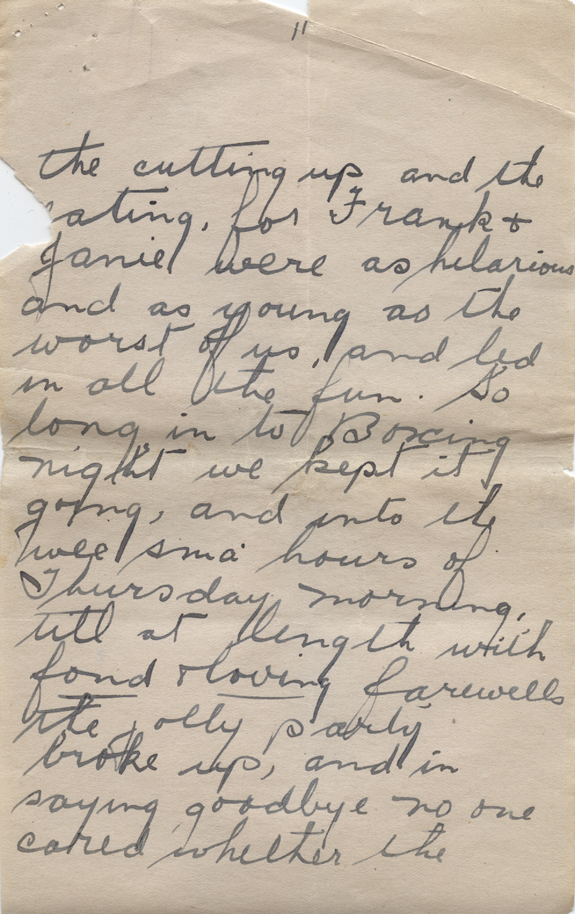 11
the cutting up and the
eating, for Frank +
Janie were as hilarious
and as young as the
worst of us, and led
in all the fun. So
long in to Boxing
night we kept it
going, and into the
wee sma' hours of
Thursday morning,
till at length with
fond & loving farewells
the jolly party
broke up, and in
saying goodbye no one
cared whether the